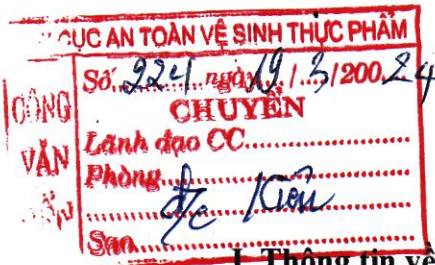 CỤC AN TOÀN VỆ SINH THỰC PHẨM
CÔNG
VĂN
Số 224 ngày 19/3/200.24
CHUYỂN
Lãnh đạo CC
Phòng
đ/c Kiên
Sao
I. Thông tin về